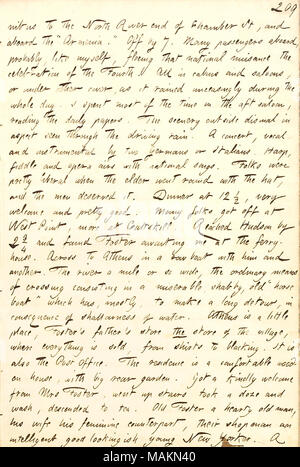 209
nibus to the North River end of Chamber St, and
aboard the "Armenia." Off by 7. Many passengers aboard
probably like myself, fleeing that national nuisance the
celebration of the Fourth. All in cabins and saloons,
or under cover, as it rained increasingly during the
whole day. I spent most of the time in the aft saloon,
reading the daily papers. The scenery outside dismal in
aspect seen through the driving rain. A concert, vocal
and instrumental by two Germans or Italians. Harp,
fiddle and opera airs with national songs. Folks were
pretty liberal when the elder went round with the hat,
and the men deserved it. Dinner at 12 ½, very
welcome and pretty good. Many folks got off at
West Point, more at Catskill. Reached Hudson by
and found Foster awaiting me at the ferry-
house. Across to Athens in a row boat with him and
another. The river a mile or so wide, the ordinary means
of crossing consisting in a miserable shabby, old "horse
boat" which has, mostly to make a long detour, in
consequence of shallowness of water. Athens is a little
place, Foster's father's store the store of the village,
where everything is sold, from shirts to blacking. It is
also the Post Office. The residence is a comfortable wood
en house, with big rear garden. Got a kindly welcome
from Mrs Foster, went up stairs took a doze and
wash, descended to tea. Old Foster a hearty old man,
his wife his feminine counterpart, their shopman an
intelligent good lookingish young New Yorker. A